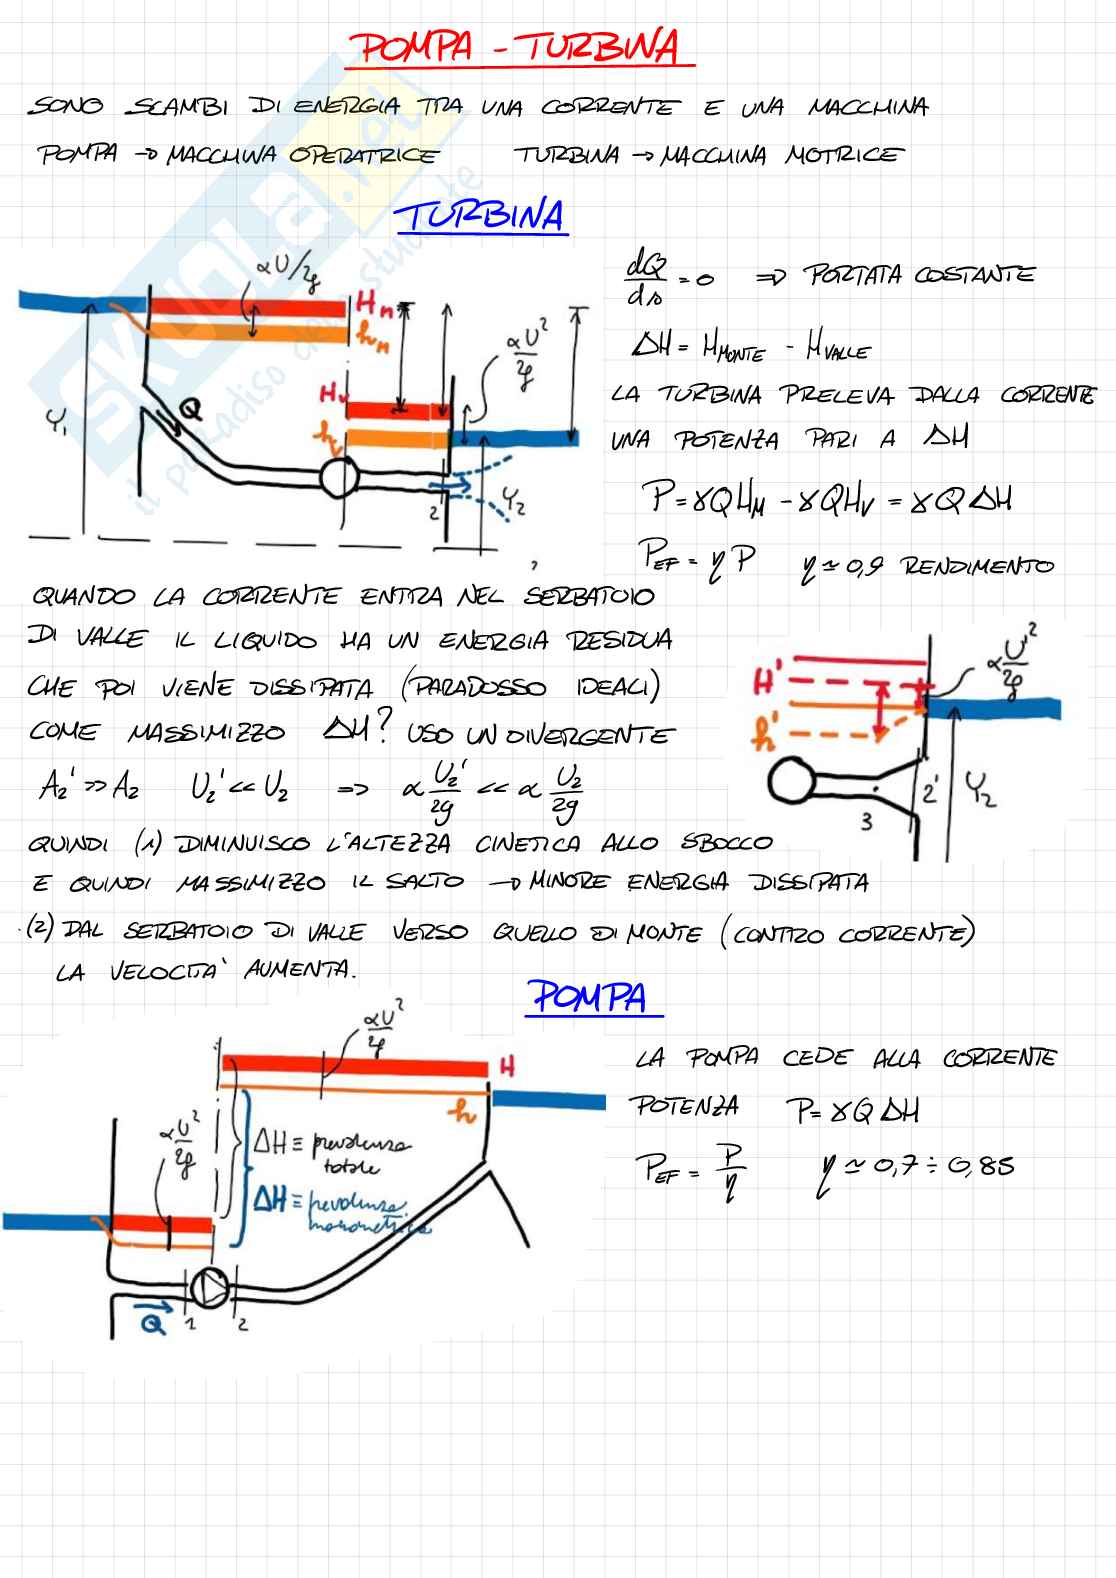 POMPA - TURBINA
SONO SCAMBI DI ENERGIA TRA UNA CORRENTE E UNA MACCHINA
POMPA → MACCHINA OPERATRICE TURBINA → MACCHINA MOTRICE
TURBINA
αU/2g
Hm
hm
αU²/2g
Hv
hv
Y₁
Q
2
Y₂
dQ/ds = 0 ⇒ PORTATA COSTANTE
ΔH = H MONTE - H VALLE
LA TURBINA PRELEVA DALLA CORRENTE
UNA POTENZA PARI A ΔH
P = γQHM - γQHV = γQΔH
PEF = ηP η ≃ 0,9 RENDIMENTO
QUANDO LA CORRENTE ENTRA NEL SERBATOIO
DI VALLE IL LIQUIDO HA UN ENERGIA RESIDUA
CHE POI VIENE DISSIPATA (PARADOSSO IDEALI)
COME MASSIMIZZO ΔH? USO UN DIVERGENTE
A₂' >> A₂ U₂' << U₂ ⇒ α U₂'/2g << α U₂/2g
H'
h'
α U'²/2g
3
2'
Y₂
QUINDI (1) DIMINUISCO L'ALTEZZA CINETICA ALLO SBOCCO
E QUINDI MASSIMIZZO IL SALTO → MINORE ENERGIA DISSIPATA
(2) DAL SERBATOIO DI VALLE VERSO QUELLO DI MONTE (CONTRO CORRENTE)
LA VELOCITA' AUMENTA.
POMPA
αU²/2g
H
h
αU²/2g
ΔH ≡ prevalenza
totale
ΔH ≡ prevalenza
manometrica
Q
1
2
LA POMPA CEDE ALLA CORRENTE
POTENZA P = γQΔH
PEF = P/η η ≃ 0,7 ÷ 0,85
SKUOLA.net
il paradiso dello studente